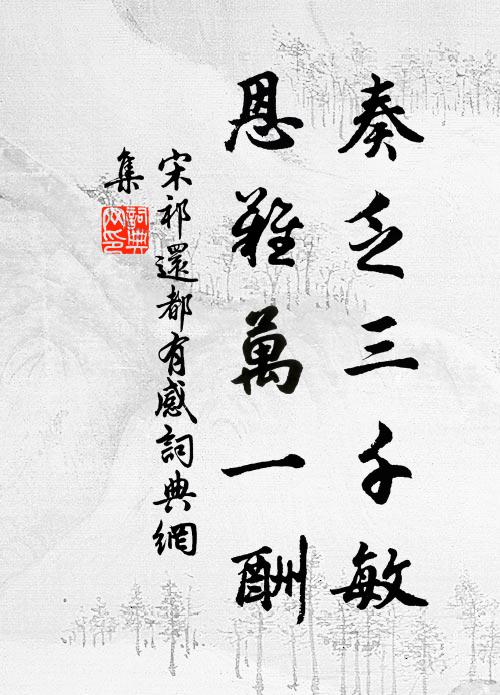 奏乏三千敏
恩難萬一酬
宋祁還都有感詞典網
集
詞典
网印